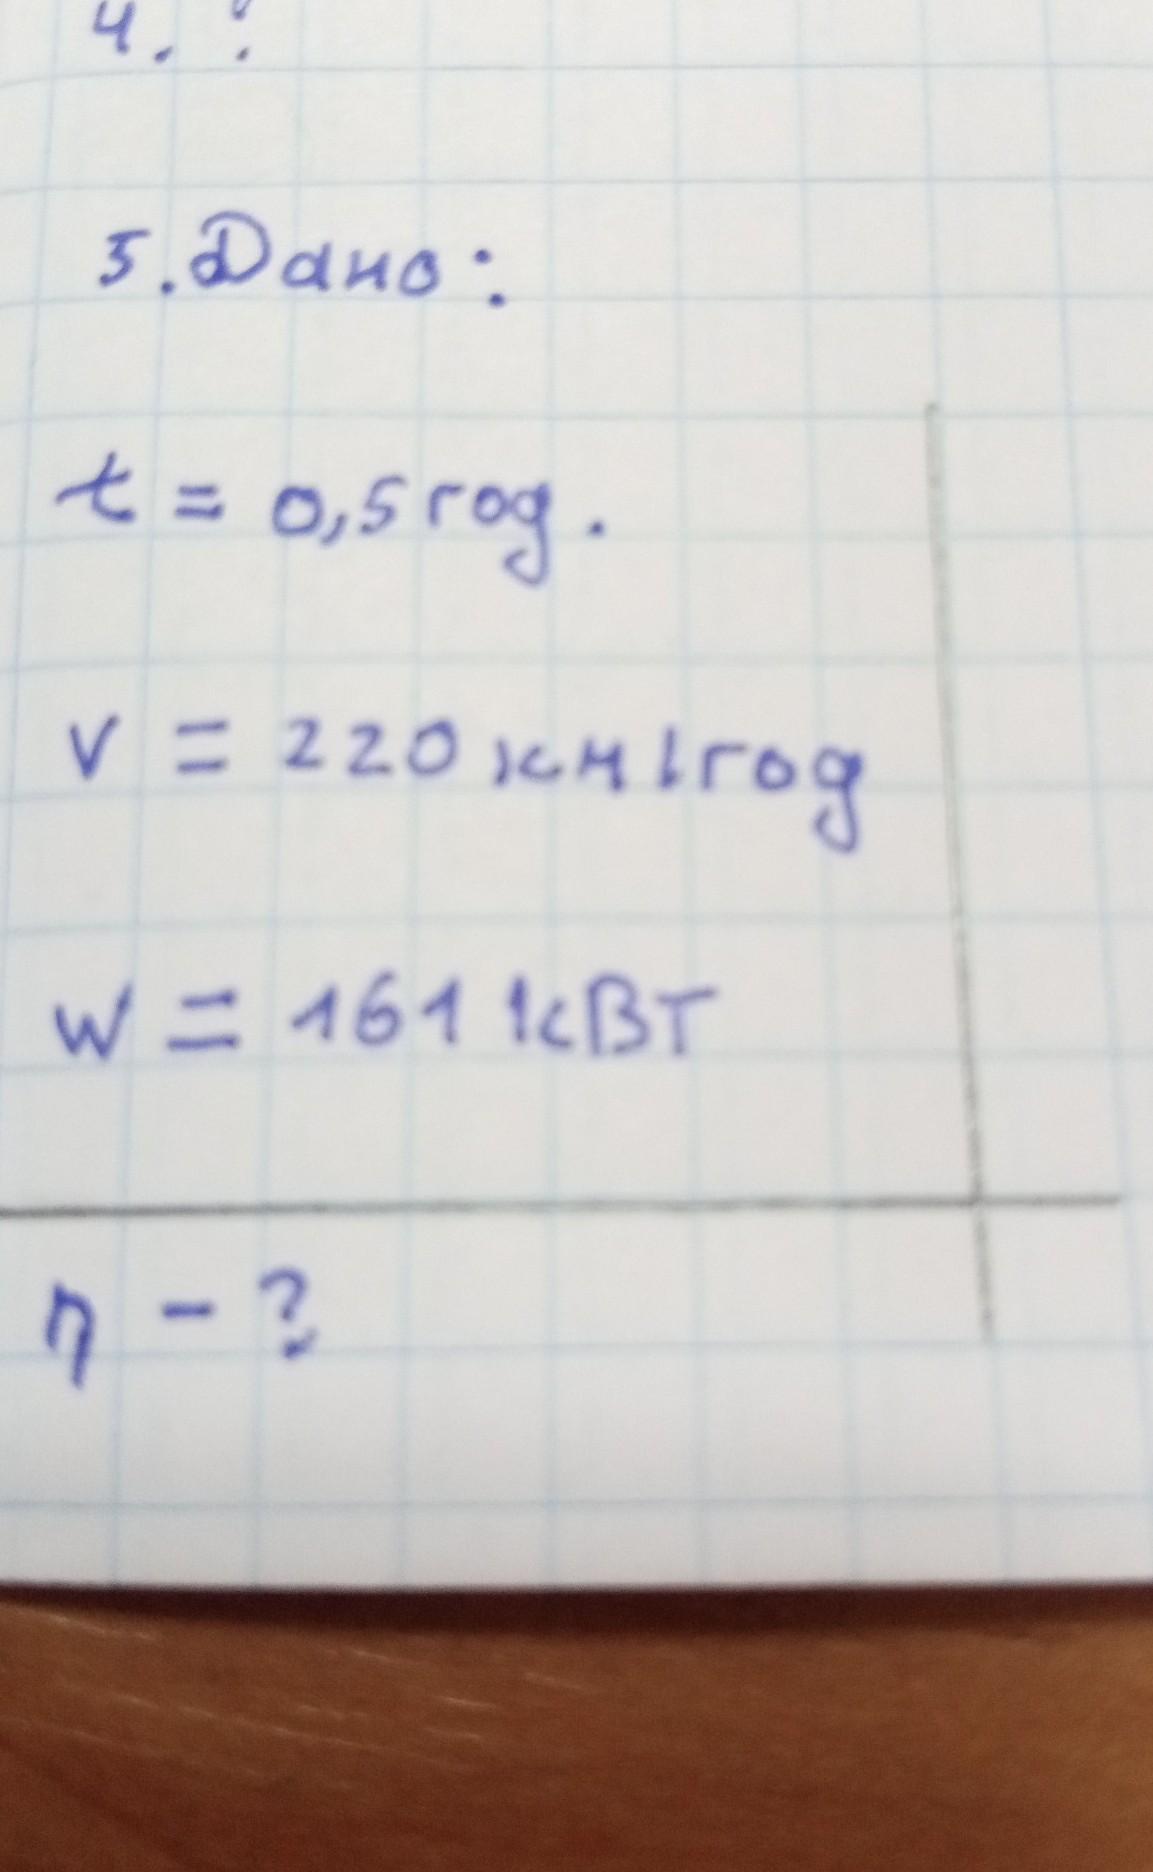 4. ?
5. Дано:
t = 0,5 год.
v = 220 км/год
w = 161 кВт
η - ?